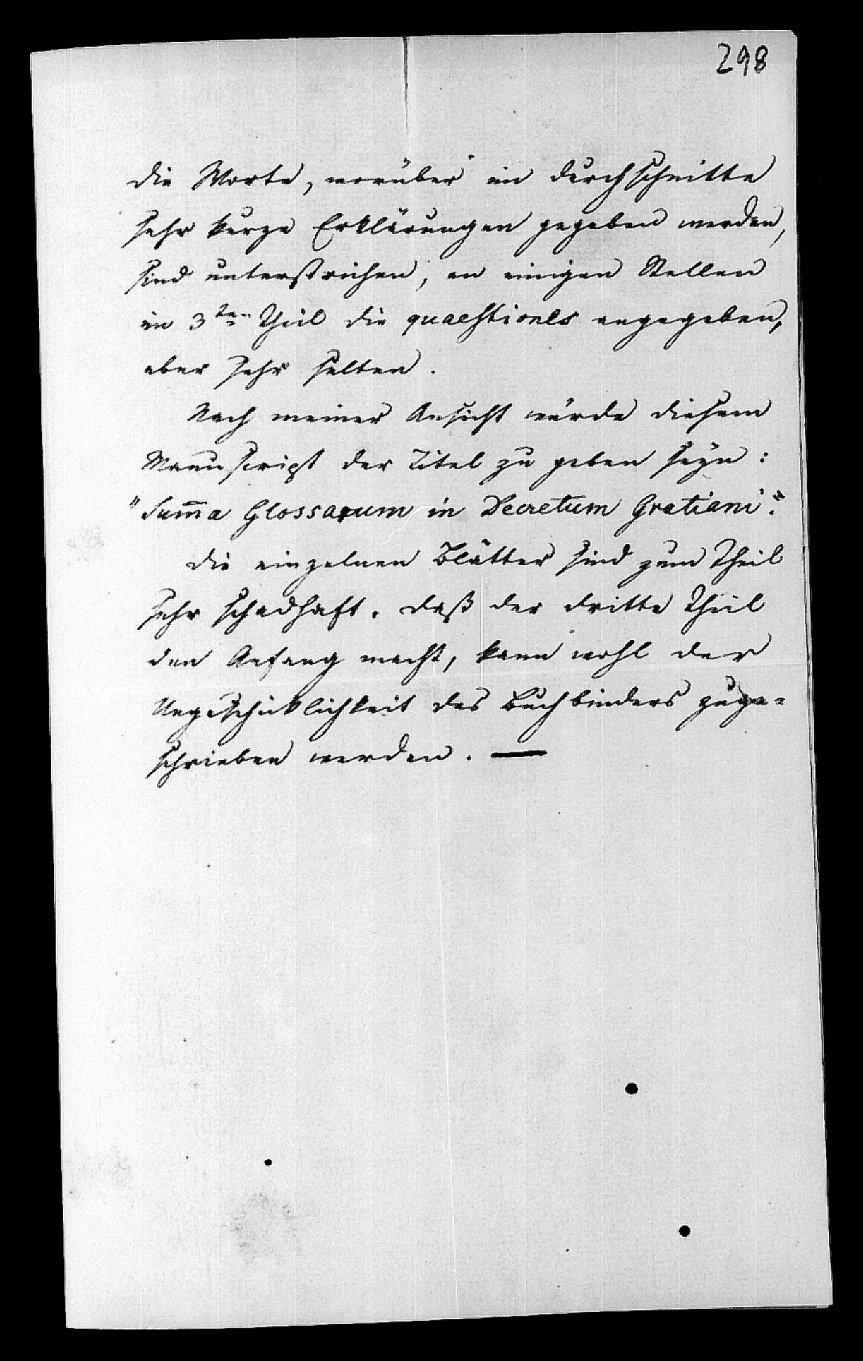 298
die Worte, worüber im durchschnitte
sehr kurze Erklärungen gegeben werden,
sind unterstrichen, an einigen Stellen
im 3ten Theil die quaestiones angegeben,
aber sehr selten.
Nach meiner Ansicht würde diesem
Manuscript der Titel zu geben seyn:
"Sum̄a Glossarum in Decretum Gratiani".
Die einzelnen Blätter sind zum Theil
sehr schadhaft. daß der dritte Theil
den Anfang macht, kann wohl der
Ungeschicklichkeit des Buchbinders zuge-
schrieben werden. —